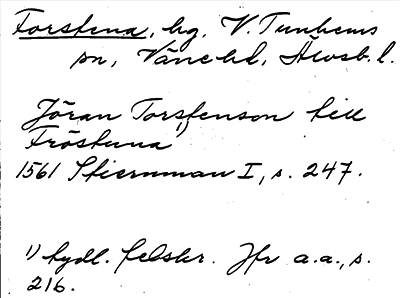 Forstena, hg, V. Tunhems
sn, Väne hd, Älvsb. l.
Jöran Torstenson till
Fröstuna¹⁾
1561 Stiernman I, s. 247.
¹⁾ tydl. felskr. Jfr a.a., s.
216.